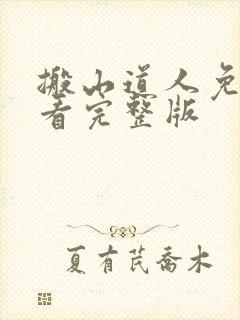 搬山道人免
看完整版
夏有芪喬木